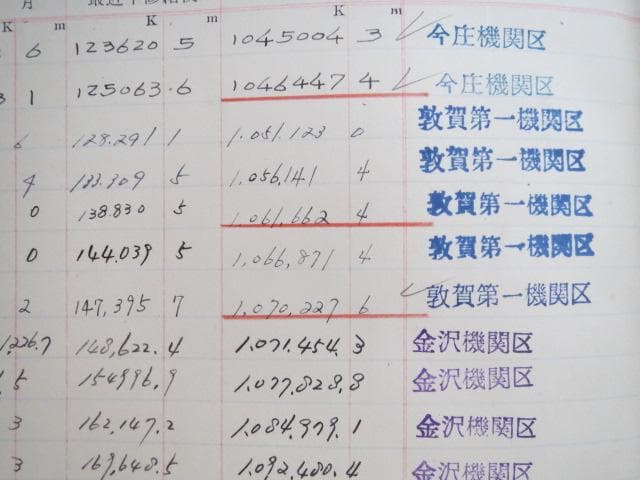 月
K m K m
6 123620 5 1045004 3 今庄機関区
1 125063.6 1046447 4 今庄機関区
6 128.291 1 1.051.123 0 敦賀第一機関区
4 133.309 5 1.056,141 4 敦賀第一機関区
0 138.830 5 1,061,662 4 敦賀第一機関区
0 144.039 5 1,066,871 4 敦賀第一機関区
2 147,395 7 1,070,227 6 敦賀第一機関区
1,226.7 148,622.4 1.071.454.3 金沢機関区
5 154996.9 1.077.828.8 金沢機関区
3 162,147.2 1.084.979.1 金沢機関区
3 169,648.5 1.092,480.4 金沢機関区